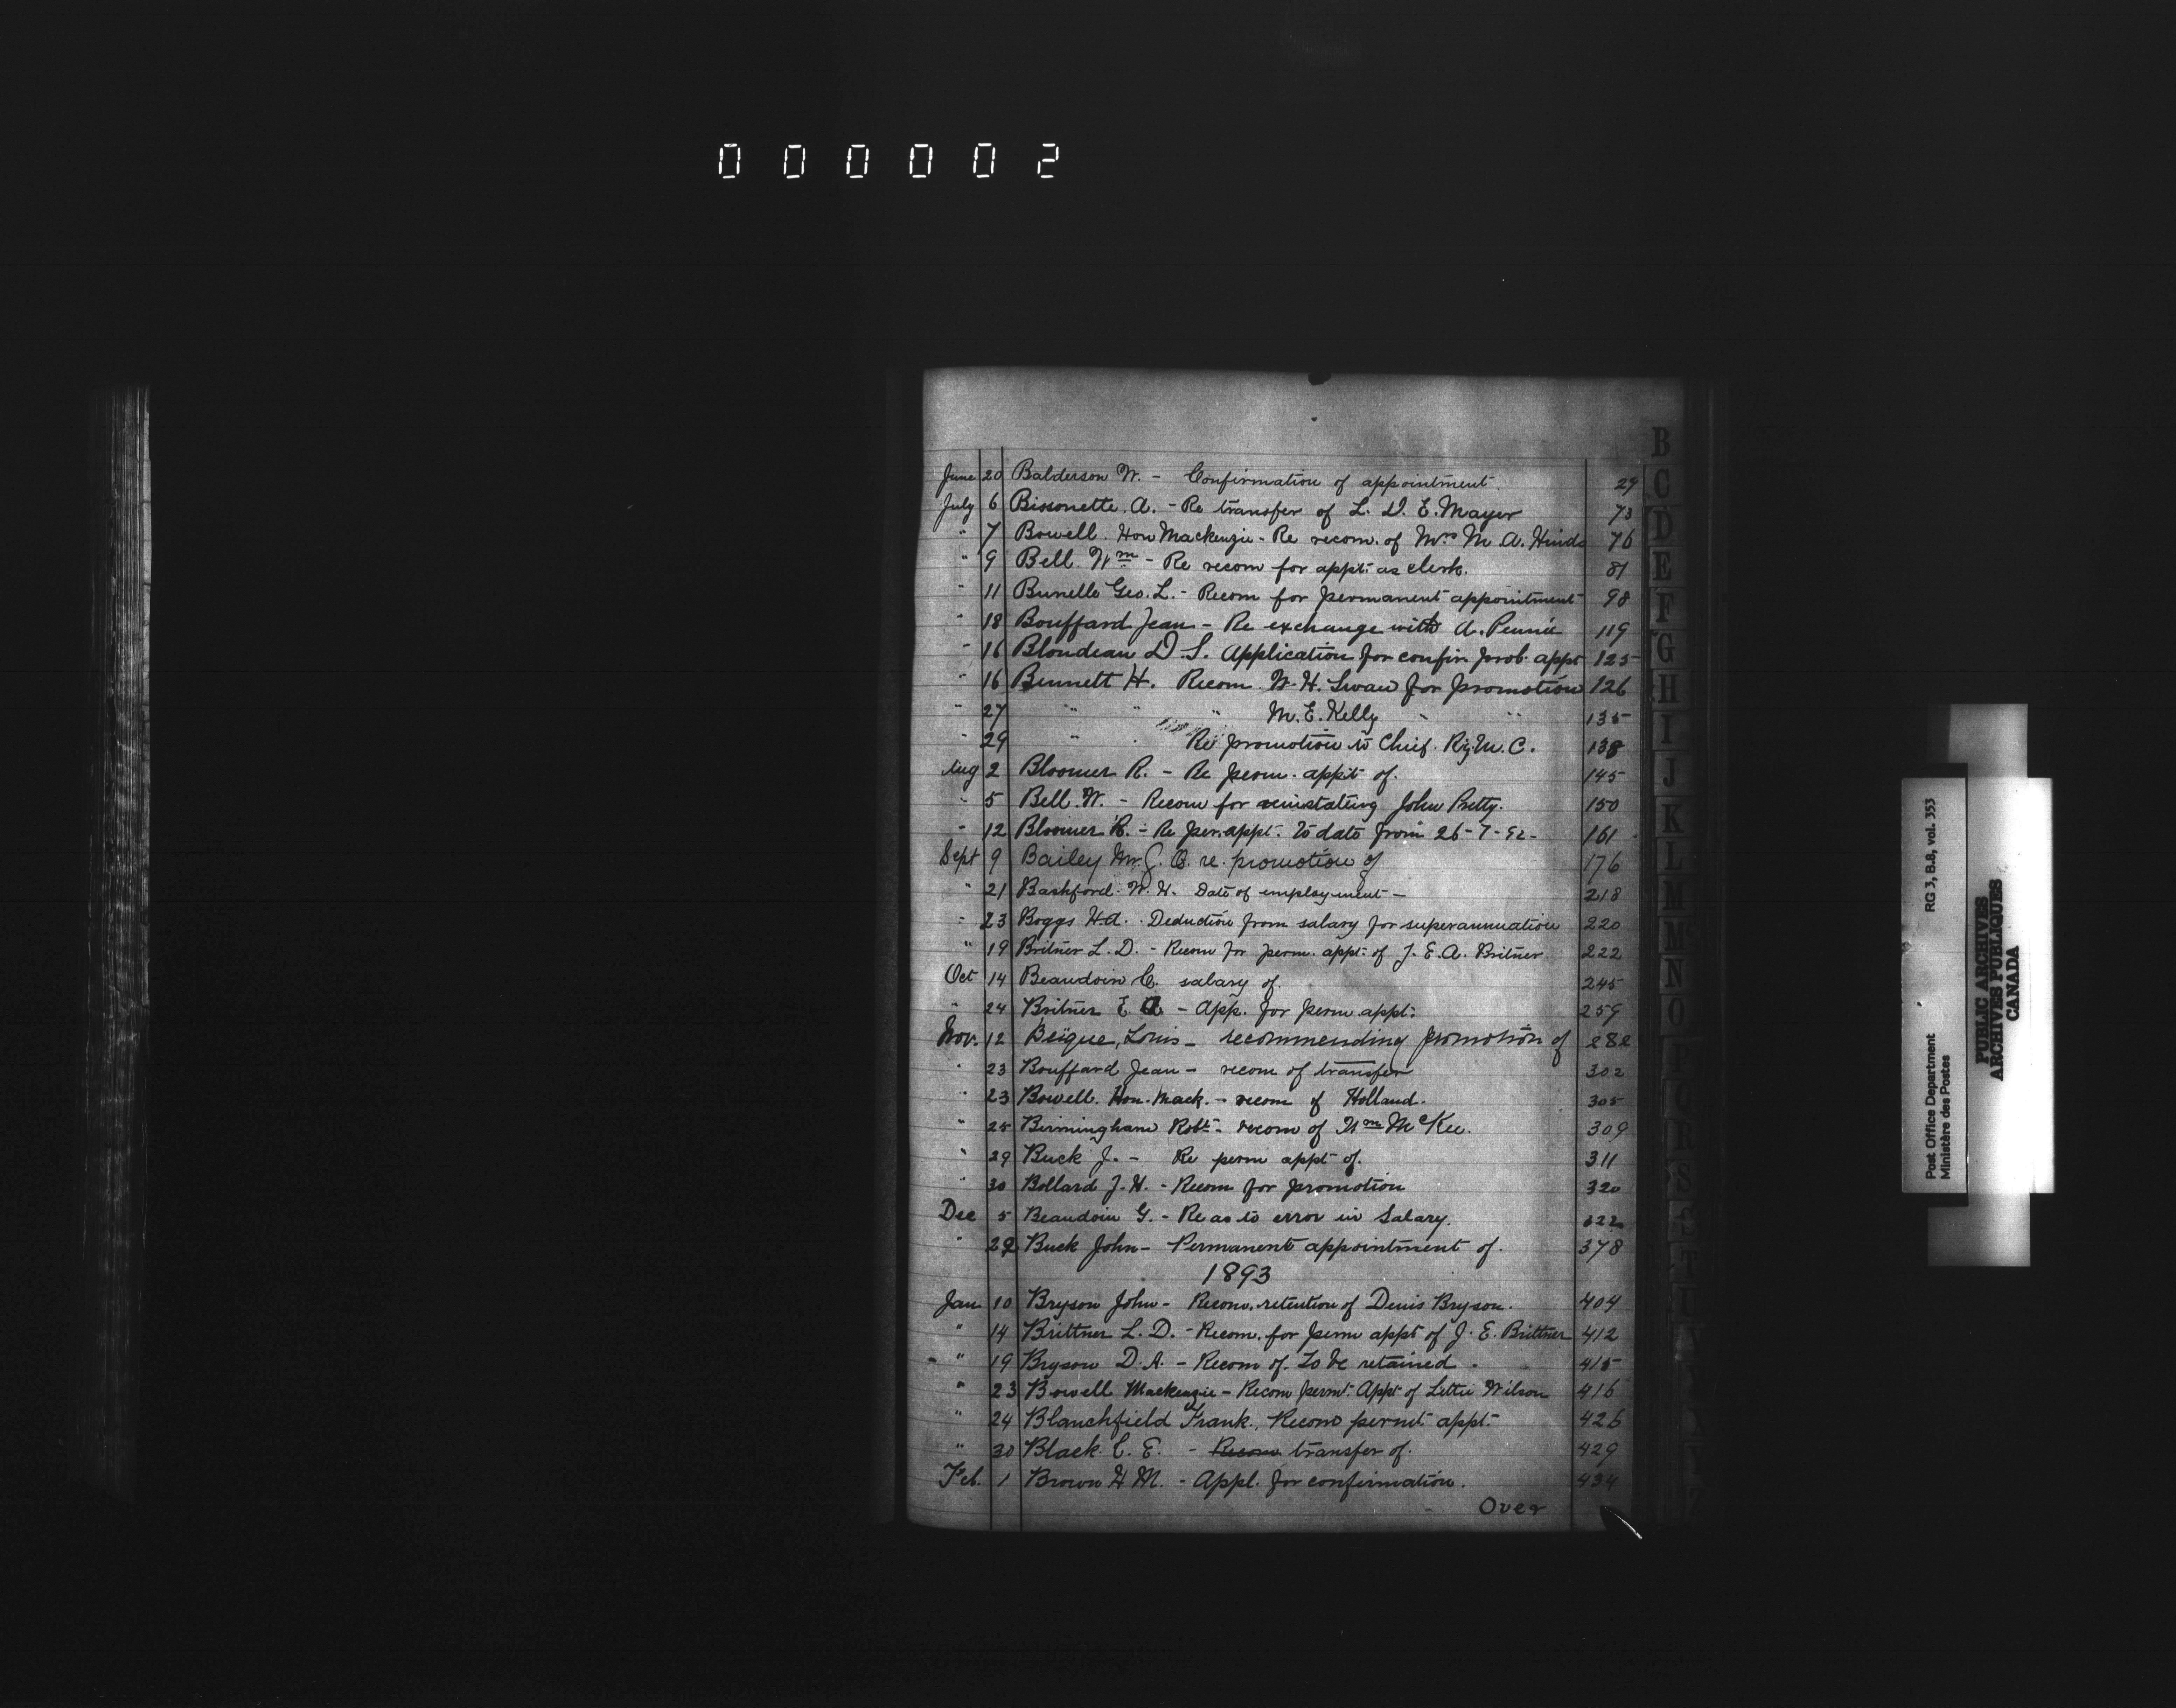 000002
June 20 Balderson W. - Confirmation of appointment 29
July 6 Bissonette. A. - Re transfer of L. D. E. Mayer 73
" 7 Bowell. Hon Mackenzie - Re recom. of Mrs M. A. Hinds 76
" 9 Bell. Wm - Re recom for appt: as clerk. 81
" 11 Brunelle Geo. L. - Recom for permanent appointment 98
" 18 Bouffard Jean - Re exchange with A. 119
" 16 Blondeau D. S. Application for confir. prob. appt 125
" 16 Bennett H. Recom. W. H. Swaw for promotion 126
" 27 " " " M. E. Kelly " " 135
" 29 " " Re promotion to Chief. Ry. M. C. 138
Aug 2 Bloomer R. - Re perm. appt of. 145
" 5 Bell. W. - Recom for reinstating John Pretty. 150
" 12 Bloomer R. - Re per. appt. to date from 26-7-92- 161
Sept 9 Bailey Mr. J. B. re. promotion of 176
" 21 Bashford. W. H. Date of employment - 218
" 23 Boggs H.A. Deduction from salary for superannuation 220
" 19 Britner L. D. - Recom for perm. appt: of J. E. A. Britner 222
Oct 14 Beaudoin C. salary of. 245
" 24 Britner E. A - App. for perm appt: 259
Nov. 12 Beique, Louis - recommending promotion of 282
" 23 Bouffard Jean - recom of transfer 302
" 23 Bowell. Hon. Mack. - recom of Holland. 305
" 25 Birmingham Robt - recom of Wm McKee. 309
" 29 Buck J. - Re perm appt of. 311
" 30 Bollard J. H. - Recom for promotion 320
Dec 5 Beaudoin G. - Re as to error in Salary. 322
" 29 Buck John - Permanent appointment of. 378
1893
Jan 10 Bryson John - Recom. retention of Denis Bryson. 404
" 14 Brittner L. D. - Recom. for perm appt of J. E. Brittner 412
" 19 Bryson D. A. - Recom of. To be retained. 415
" 23 Bowell Mackenzie - Recom permt. Appt of Lettie Wilson 416
" 24 Blanchfield Frank. Recom permt appt. 426
" 30 Black. C. E. - Recom transfer of. 429
Feb. 1 Brown H M. - Appl. for confirmation. 434
Over
B
C
D
E
F
G
H
I
J
K
L
M
N
O
R
S
T
Post Office Department RG 3, B.8, vol. 353
Ministère des Postes
PUBLIC ARCHIVES
ARCHIVES PUBLIQUES
CANADA